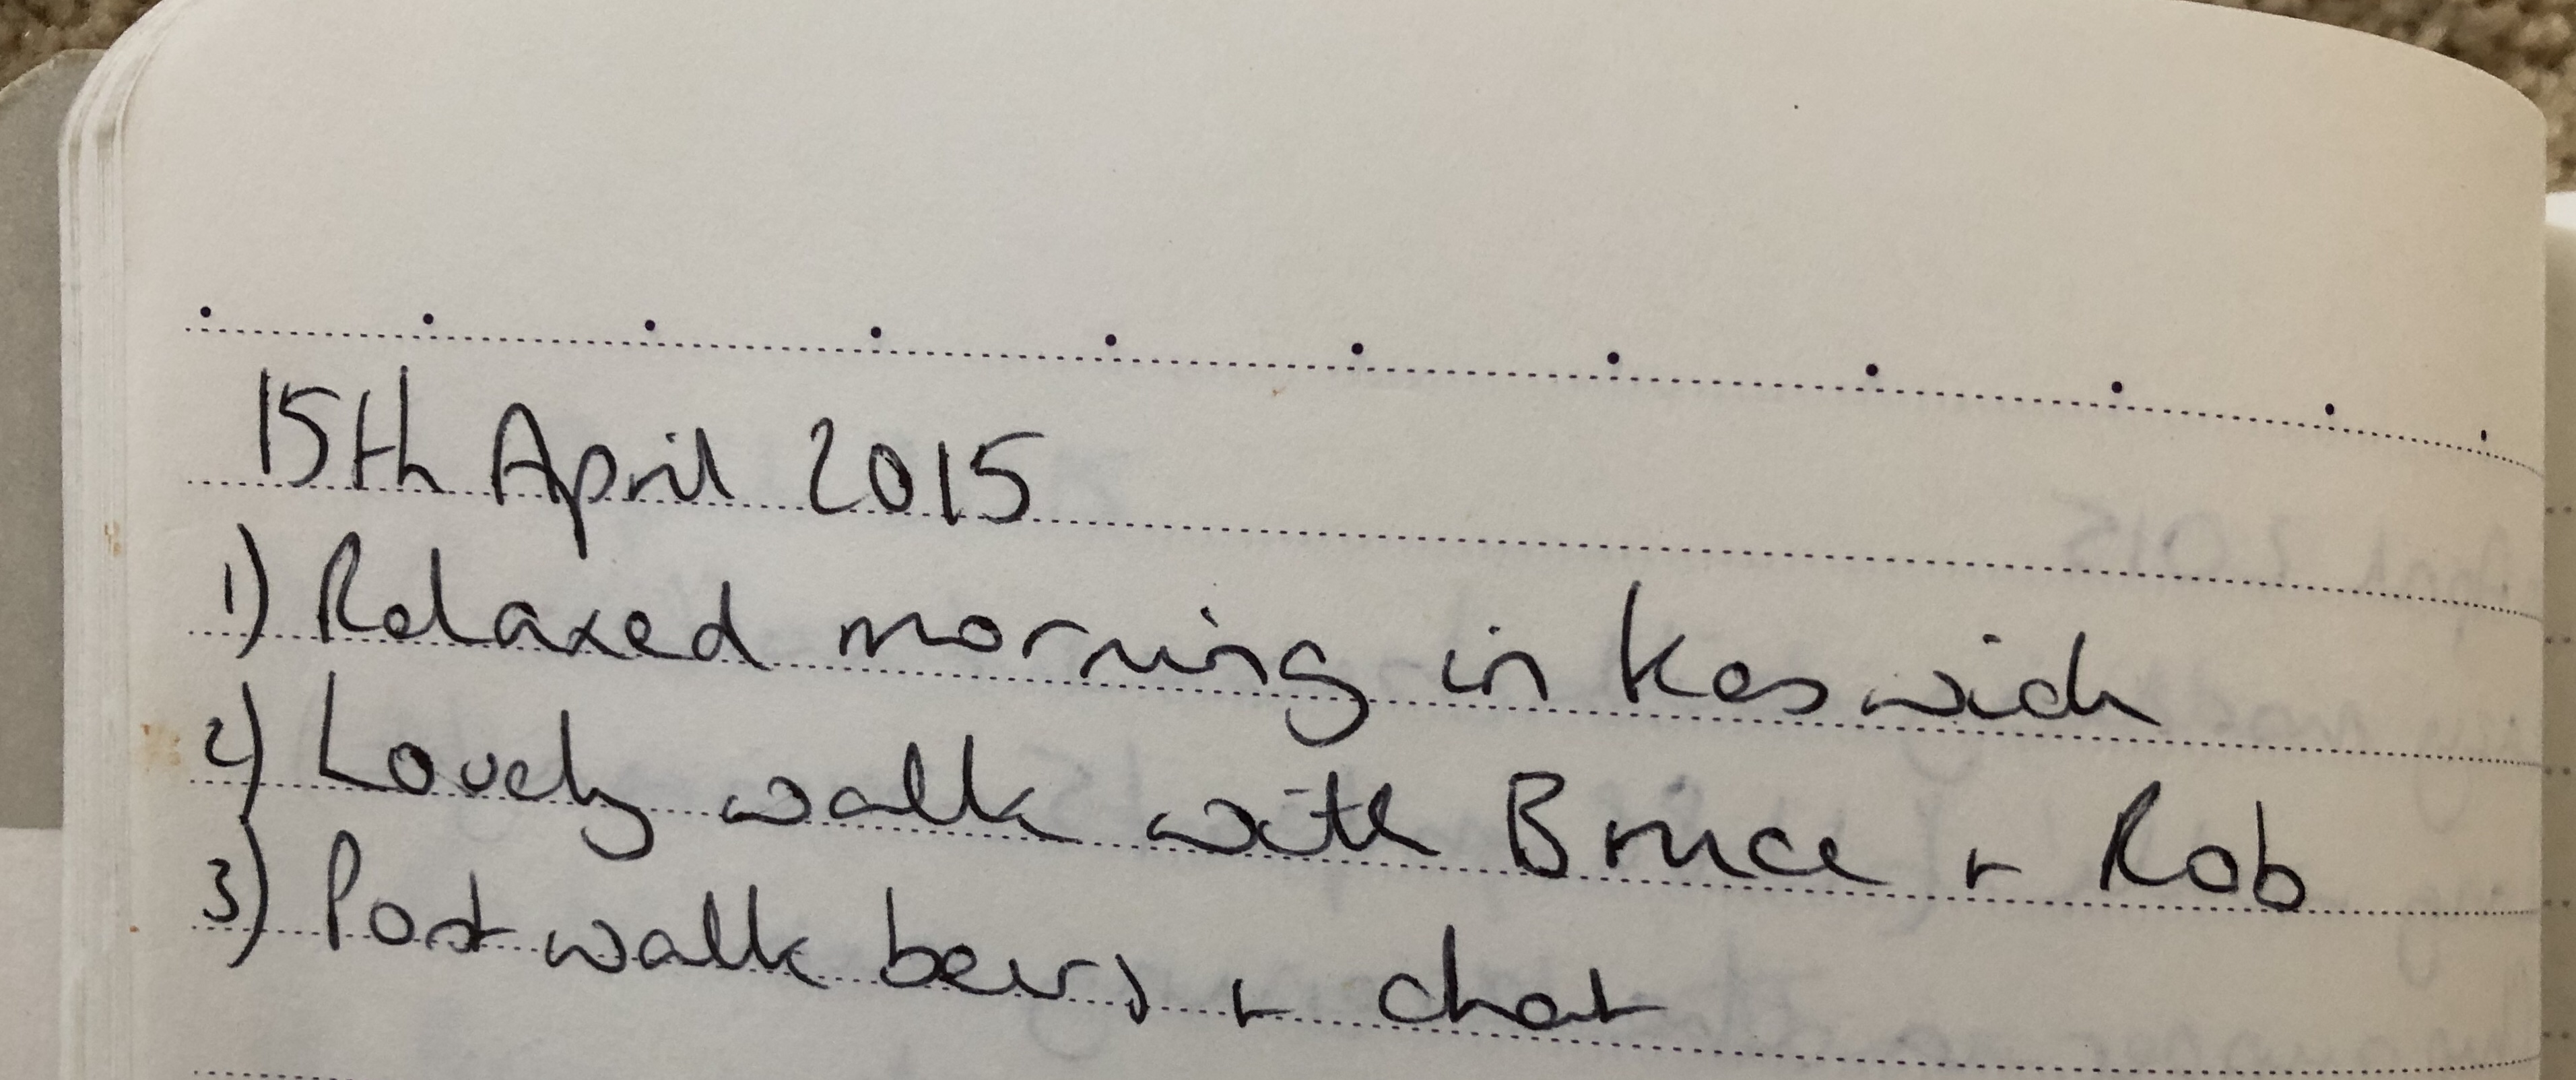 15th April 2015
1) Relaxed morning in Keswick
2) Lovely walk with Bruce + Rob
3) Post walk beers + chat